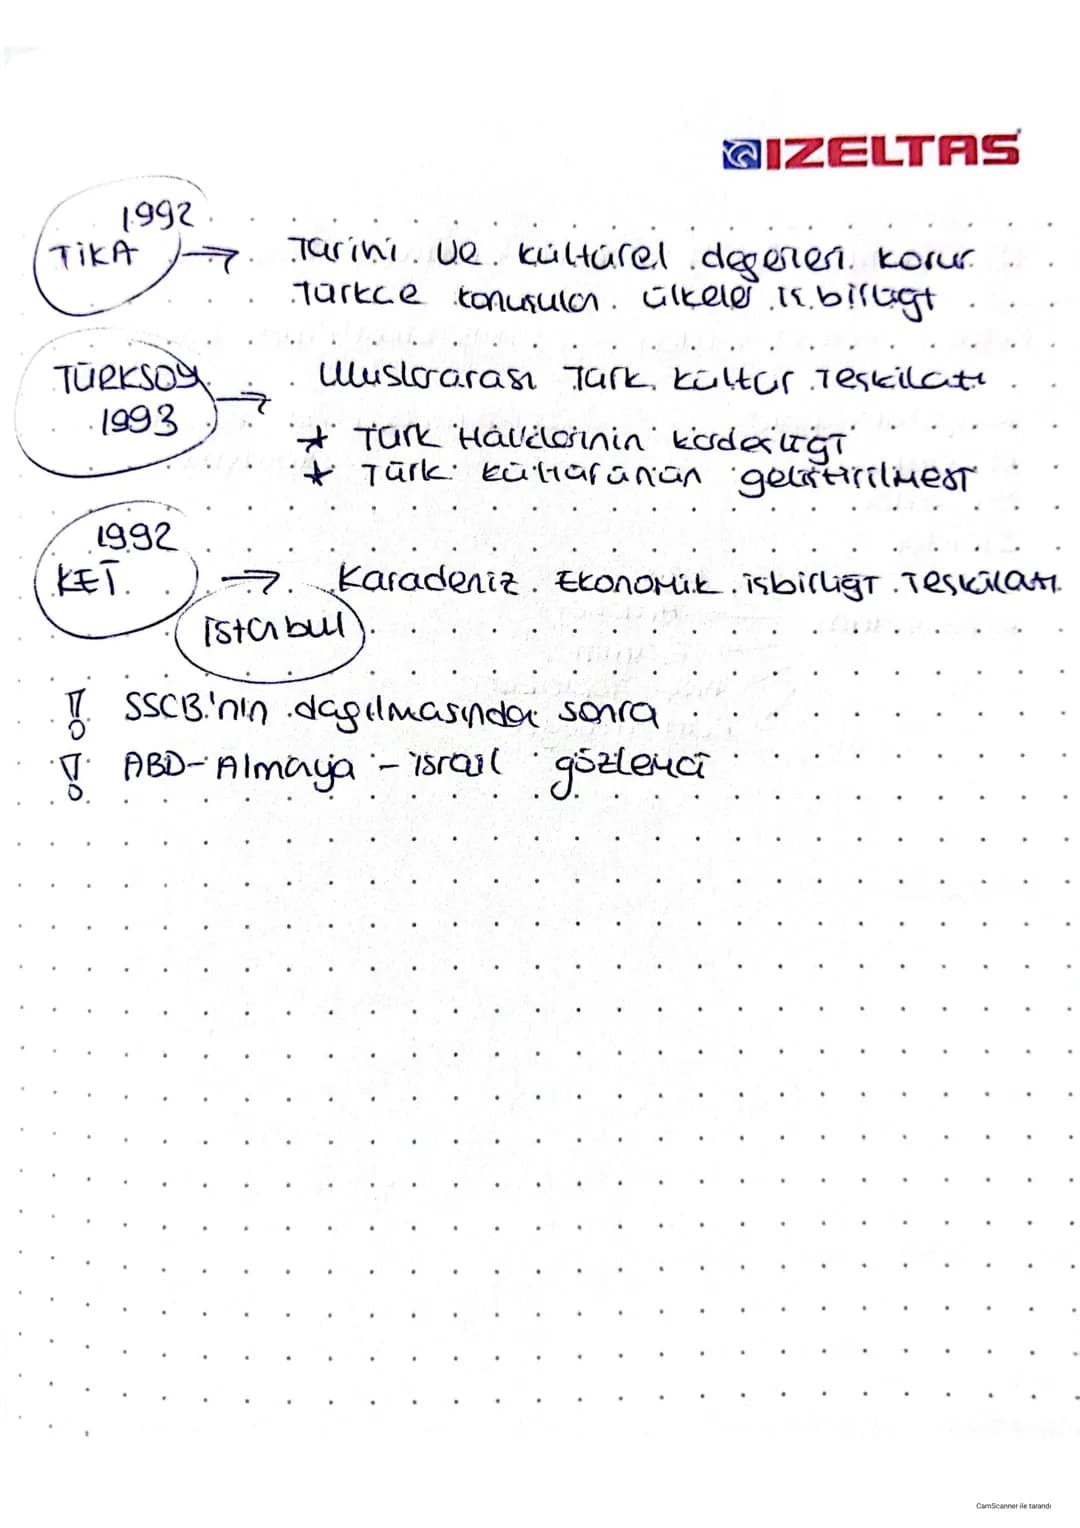 IZELTAS
1992
TİKA → Tarihi ve kültürel değerleri korur.
Türkçe konuşulan ülkeler iş birliği
TÜRKSOY → Uluslararası Türk Kültür Teşkilatı
1993
* Türk Halklarının kardeşliği
* Türk kültürünün geliştirilmesi
1992
KET → Karadeniz Ekonomik işbirliği Teşkilatı
İstanbul
! SSCB'nin dağılmasından sonra
! ABD - Almaya - israil gözlemci
CamScanner ile tarandı